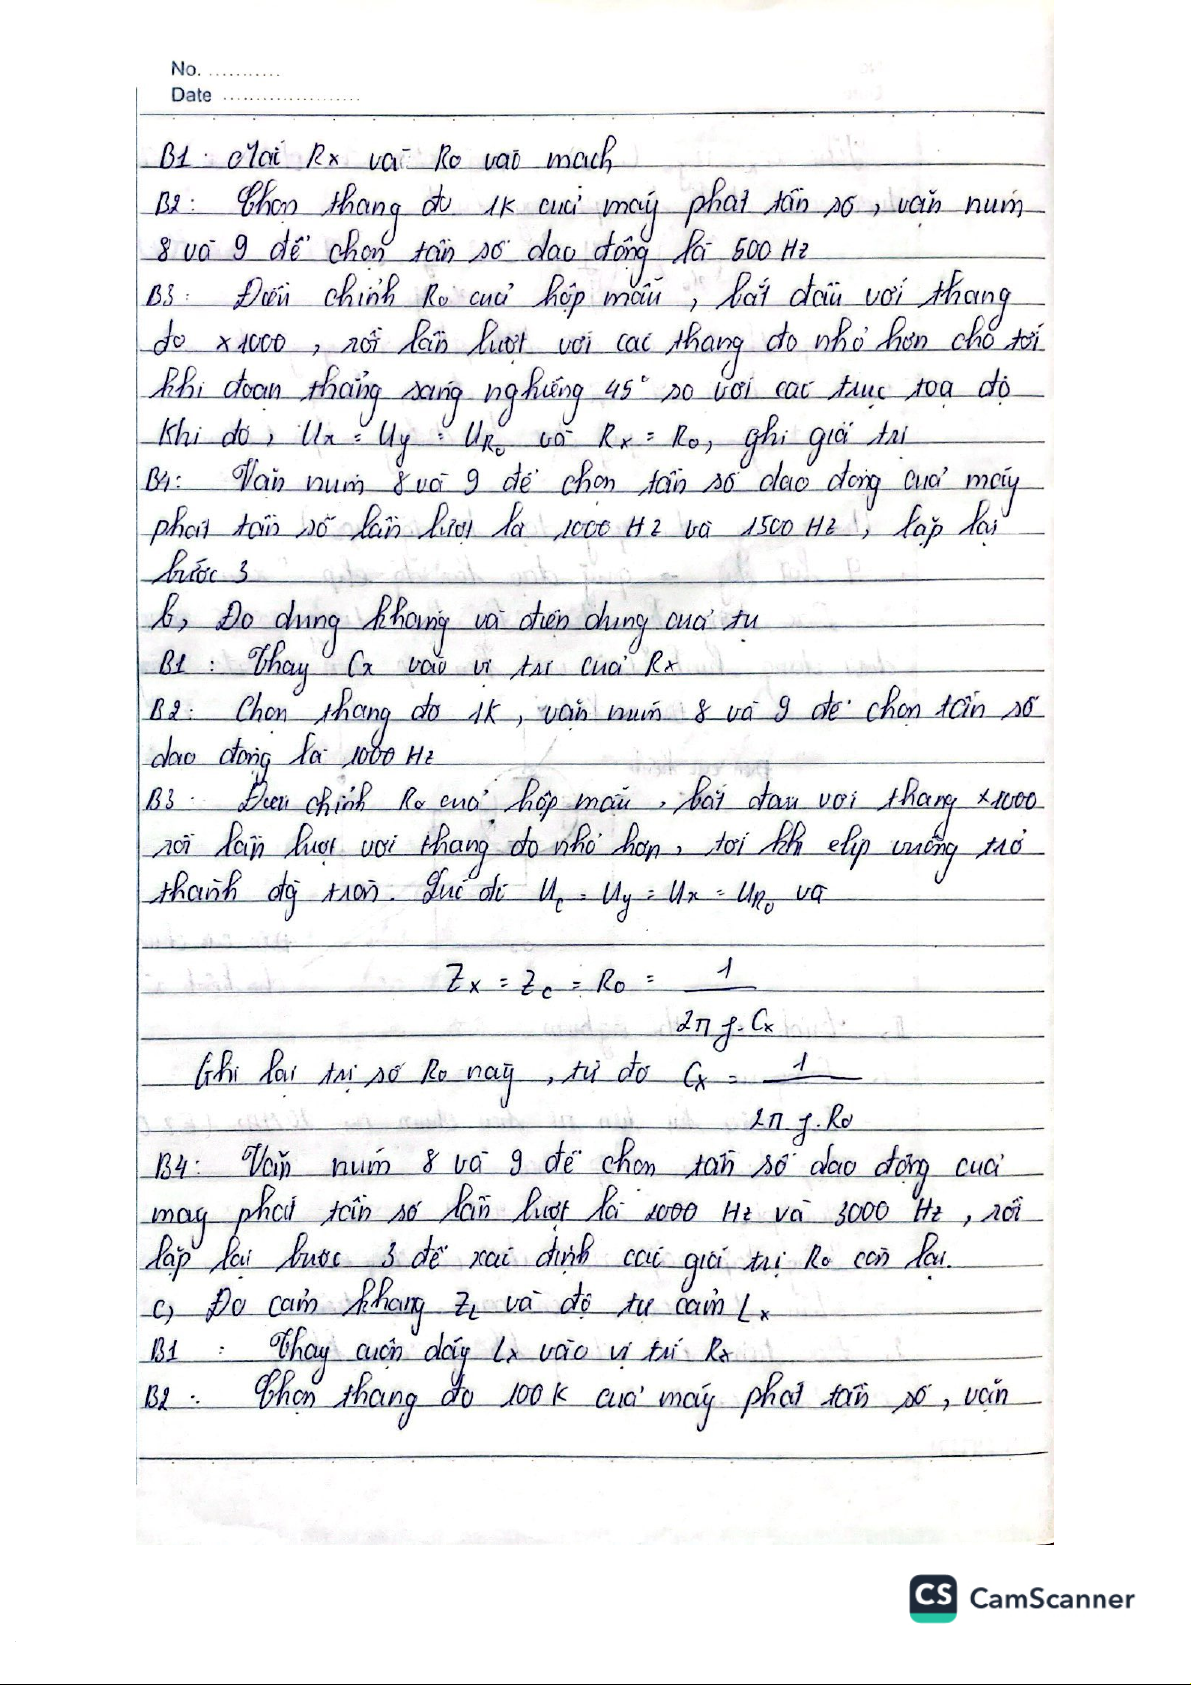 No. ...........
Date .....................
B1 : Mắc Rx và Ro vào mạch
B2 : Chọn thang đo 1K của máy phát tần số, vặn núm
8 và 9 để chọn tần số dao động là 500 Hz
B3 : Điều chỉnh Ro của hộp mẫu, bắt đầu với thang
đo x1000, rồi lần lượt với các thang đo nhỏ hơn cho tới
khi đoạn thẳng sáng nghiêng 45° so với các trục toạ độ
Khi đó, Ux = Uy = URo và Rx = Ro, ghi giá trị
B4 : Vặn núm 8 và 9 để chọn tần số dao động của máy
phát tần số lần lượt là 1000 Hz và 1500 Hz, lặp lại
bước 3
b, Đo dung kháng và điện dung của tụ
B1 : Thay Cx vào vị trí của Rx
B2 : Chọn thang đo 1K, vặn núm 8 và 9 để chọn tần số
dao động là 1000 Hz
B3 : Điều chỉnh Ro của hộp mẫu, bắt đầu với thang x1000
rồi lần lượt với thang đo nhỏ hơn, tới khi elip vuông trở
thành độ tròn. Lúc đó Uc = Uy = Ux = URo và
Zx = Zc = Ro = 1
2π f. Cx
Ghi lại trị số Ro này, từ đó Cx = 1
2π f. Ro
B4 : Vặn núm 8 và 9 để chọn tần số dao động của
máy phát tần số lần lượt là 2000 Hz và 3000 Hz, rồi
lặp lại bước 3 để xác định các giá trị Ro còn lại.
c, Đo cảm kháng ZL và độ tự cảm Lx
B1 : Thay cuộn dây Lx vào vị trí Rx
B2 : Chọn thang đo 100K của máy phát tần số, vặn
CS CamScanner